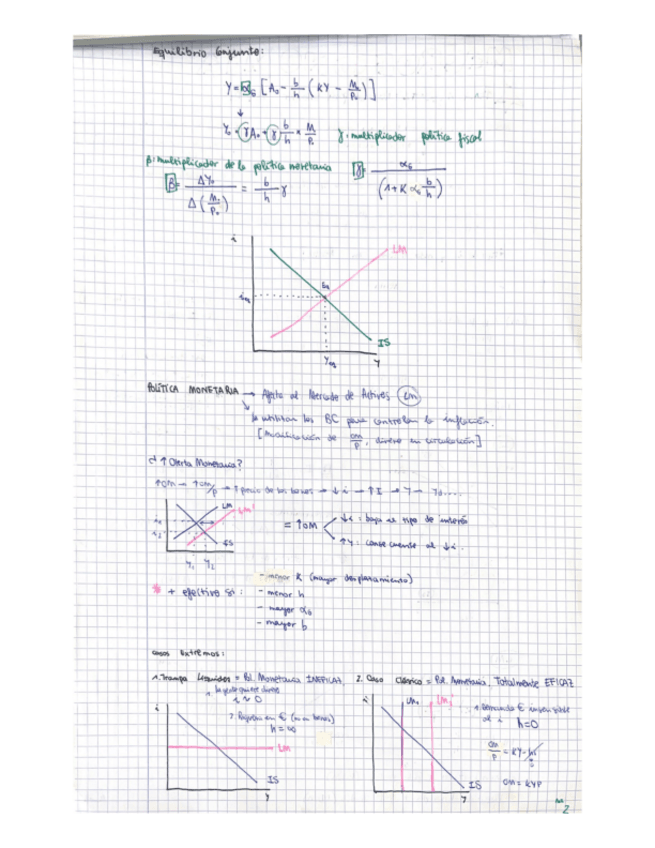 Equilibrio Conjunto:
Y = αG [A₀ - b/h (KY - M₀/P₀)]
Y₀ = γA₀ + γ b/h × M/P₀   γ: multiplicador política fiscal
β: multiplicador de la política monetaria
β = ΔY₀ / Δ(M₀/P₀) = b/h γ
γ = αG / (1 + K αG b/h)
i
LM
E₀
IS
Yeq
Y
POLÍTICA MONETARIA → Afecta al Mercado de Activos (LM)
la utilizan los BC para controlar la inflación.
[Modificación de OM/P, dinero en circulación]
¿↑ Oferta Monetaria?
↑OM → ↑OM/P → ↑ precio de los bonos → ↓i → ↑I → Y → Yd.....
LM
LM'
i₁
i₂
IS
Y₁ Y₂
= ↑OM
↓i: baja el tipo de interés
↑Y: consecuente al ↓i.
+ efectivo si:
- menor K (mayor desplazamiento)
- menor h
- mayor αG
- mayor b
Casos Extremos:
1. Trampa Liquidez = Pol. Monetaria INEFICAZ
1. la gente quiere dinero
i ≈ 0
h = ∞
i
LM
IS
Y
2. Caso Clásico = Pol. Monetaria Totalmente EFICAZ
1. Demanda € insensible
al i h=0
i
LM₀
LM₁
IS
Y
OM/P = KY - hi
0
OM = KYP
2